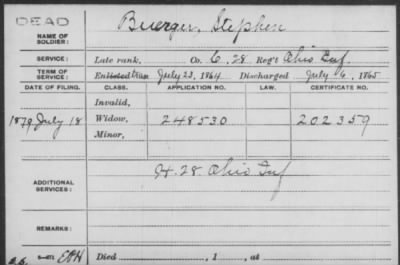 DEAD
NAME OF SOLDIER: Buerger, Stephen
SERVICE: Late rank, Co. C, 28 Reg't Ohio Inf.
TERM OF SERVICE: Enlisted July 23, 1864 Discharged July 6, 1865
DATE OF FILING. CLASS. APPLICATION NO. LAW. CERTIFICATE NO.
Invalid,
1879 July 18 Widow, 248530 202359
Minor,
ADDITIONAL SERVICES: H. 28. Ohio Inf
REMARKS:
Died , 1 , at